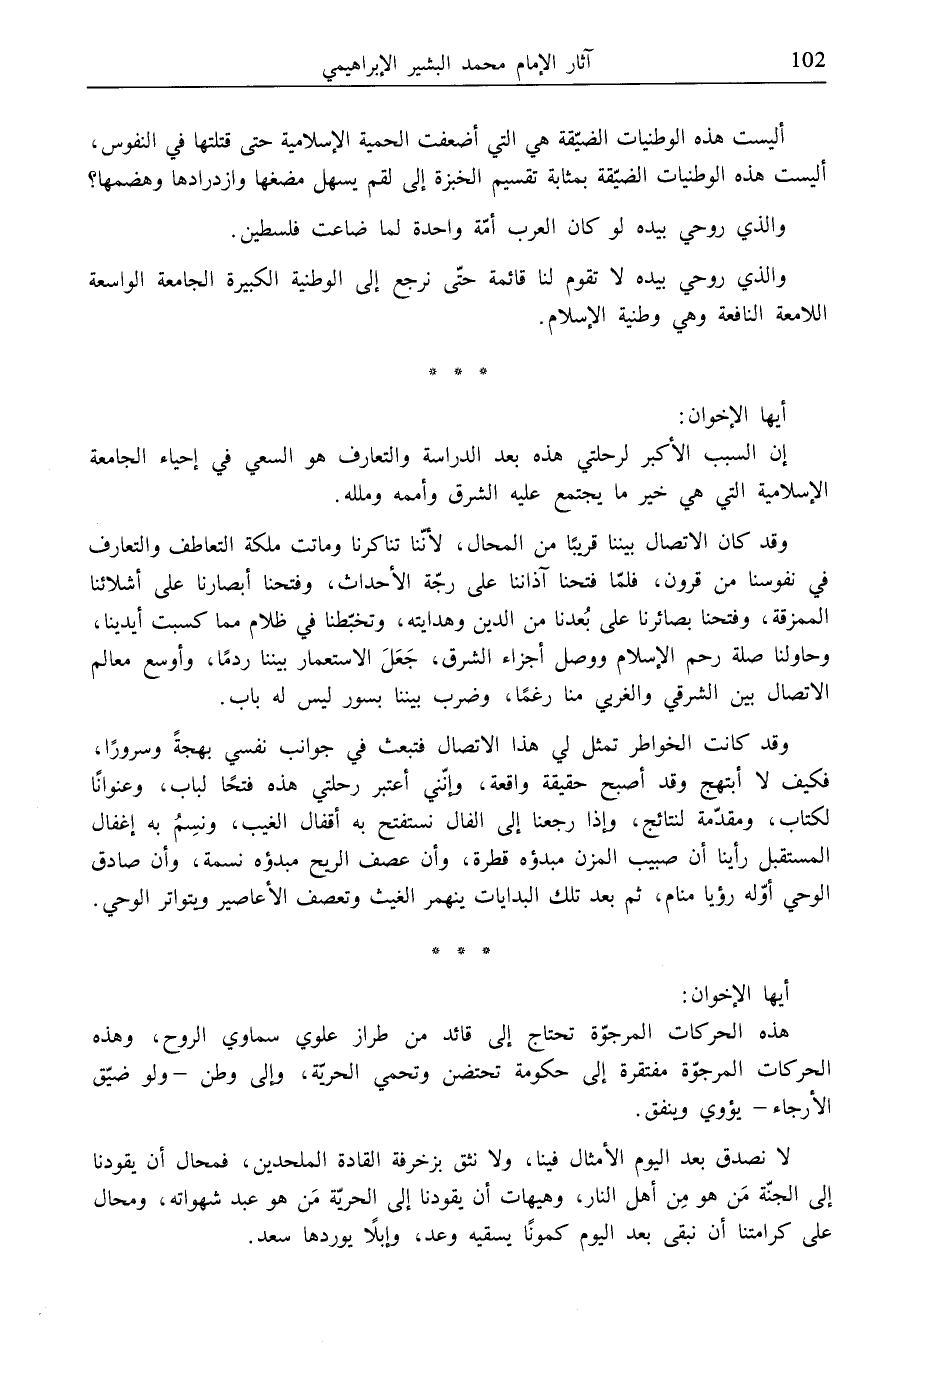 102
آثار الإمام محمد البشير الإبراهيمي
أليست هذه الوطنيات الضيّقة هي التي أضعفت الحمية الإسلامية حتى قتلتها في النفوس،
أليست هذه الوطنيات الضيّقة بمثابة تقسيم الخبزة إلى لقم يسهل مضغها وازدرادها وهضمها؟
والذي روحي بيده لو كان العرب أمّة واحدة لما ضاعت فلسطين.
والذي روحي بيده لا تقوم لنا قائمة حتّى نرجع إلى الوطنية الكبيرة الجامعة الواسعة
اللامعة النافعة وهي وطنية الإسلام.
* * *
أيها الإخوان:
إن السبب الأكبر لرحلتي هذه بعد الدراسة والتعارف هو السعي في إحياء الجامعة
الإسلامية التي هي خير ما يجتمع عليه الشرق وأممه وملله.
وقد كان الاتصال بيننا قريبًا من المحال، لأنّنا تناكرنا وماتت ملكة التعاطف والتعارف
في نفوسنا من قرون، فلمّا فتحنا آذاننا على رجّة الأحداث، وفتحنا أبصارنا على أشلائنا
الممزقة، وفتحنا بصائرنا على بُعدنا من الدين وهدايته، وتخبّطنا في ظلام مما كسبت أيدينا،
وحاولنا صلة رحم الإسلام ووصل أجزاء الشرق، جَعَلَ الاستعمار بيننا ردمًا، وأوسع معالم
الاتصال بين الشرقي والغربي منا رغمًا، وضرب بيننا بسور ليس له باب.
وقد كانت الخواطر تمثل لي هذا الاتصال فتبعث في جوانب نفسي بهجةً وسرورًا،
فكيف لا أبتهج وقد أصبح حقيقة واقعة، وإنّني أعتبر رحلتي هذه فتحًا لباب، وعنوانًا
لكتاب، ومقدّمة لنتائج، وإذا رجعنا إلى الفال نستفتح به أقفال الغيب، ونسِمُ به إغفال
المستقبل رأينا أن صبيب المزن مبدؤه قطرة، وأن عصف الريح مبدؤه نسمة، وأن صادق
الوحي أوّله رؤيا منام، ثم بعد تلك البدايات ينهمر الغيث وتعصف الأعاصير ويتواتر الوحي.
* * *
أيها الإخوان:
هذه الحركات المرجوّة تحتاج إلى قائد من طراز علوي سماوي الروح، وهذه
الحركات المرجوّة مفتقرة إلى حكومة تحتضن وتحمي الحريّة، وإلى وطن –ولو ضيّق
الأرجاء– يؤوي وينفق.
لا نصدق بعد اليوم الأمثال فينا، ولا نثق بزخرفة القادة الملحدين، فمحال أن يقودنا
إلى الجنّة مَن هو مِن أهل النار، وهيهات أن يقودنا إلى الحريّة مَن هو عبد شهواته، ومحال
على كرامتنا أن نبقى بعد اليوم كمونًا يسقيه وعد، وإبلًا يوردها سعد.